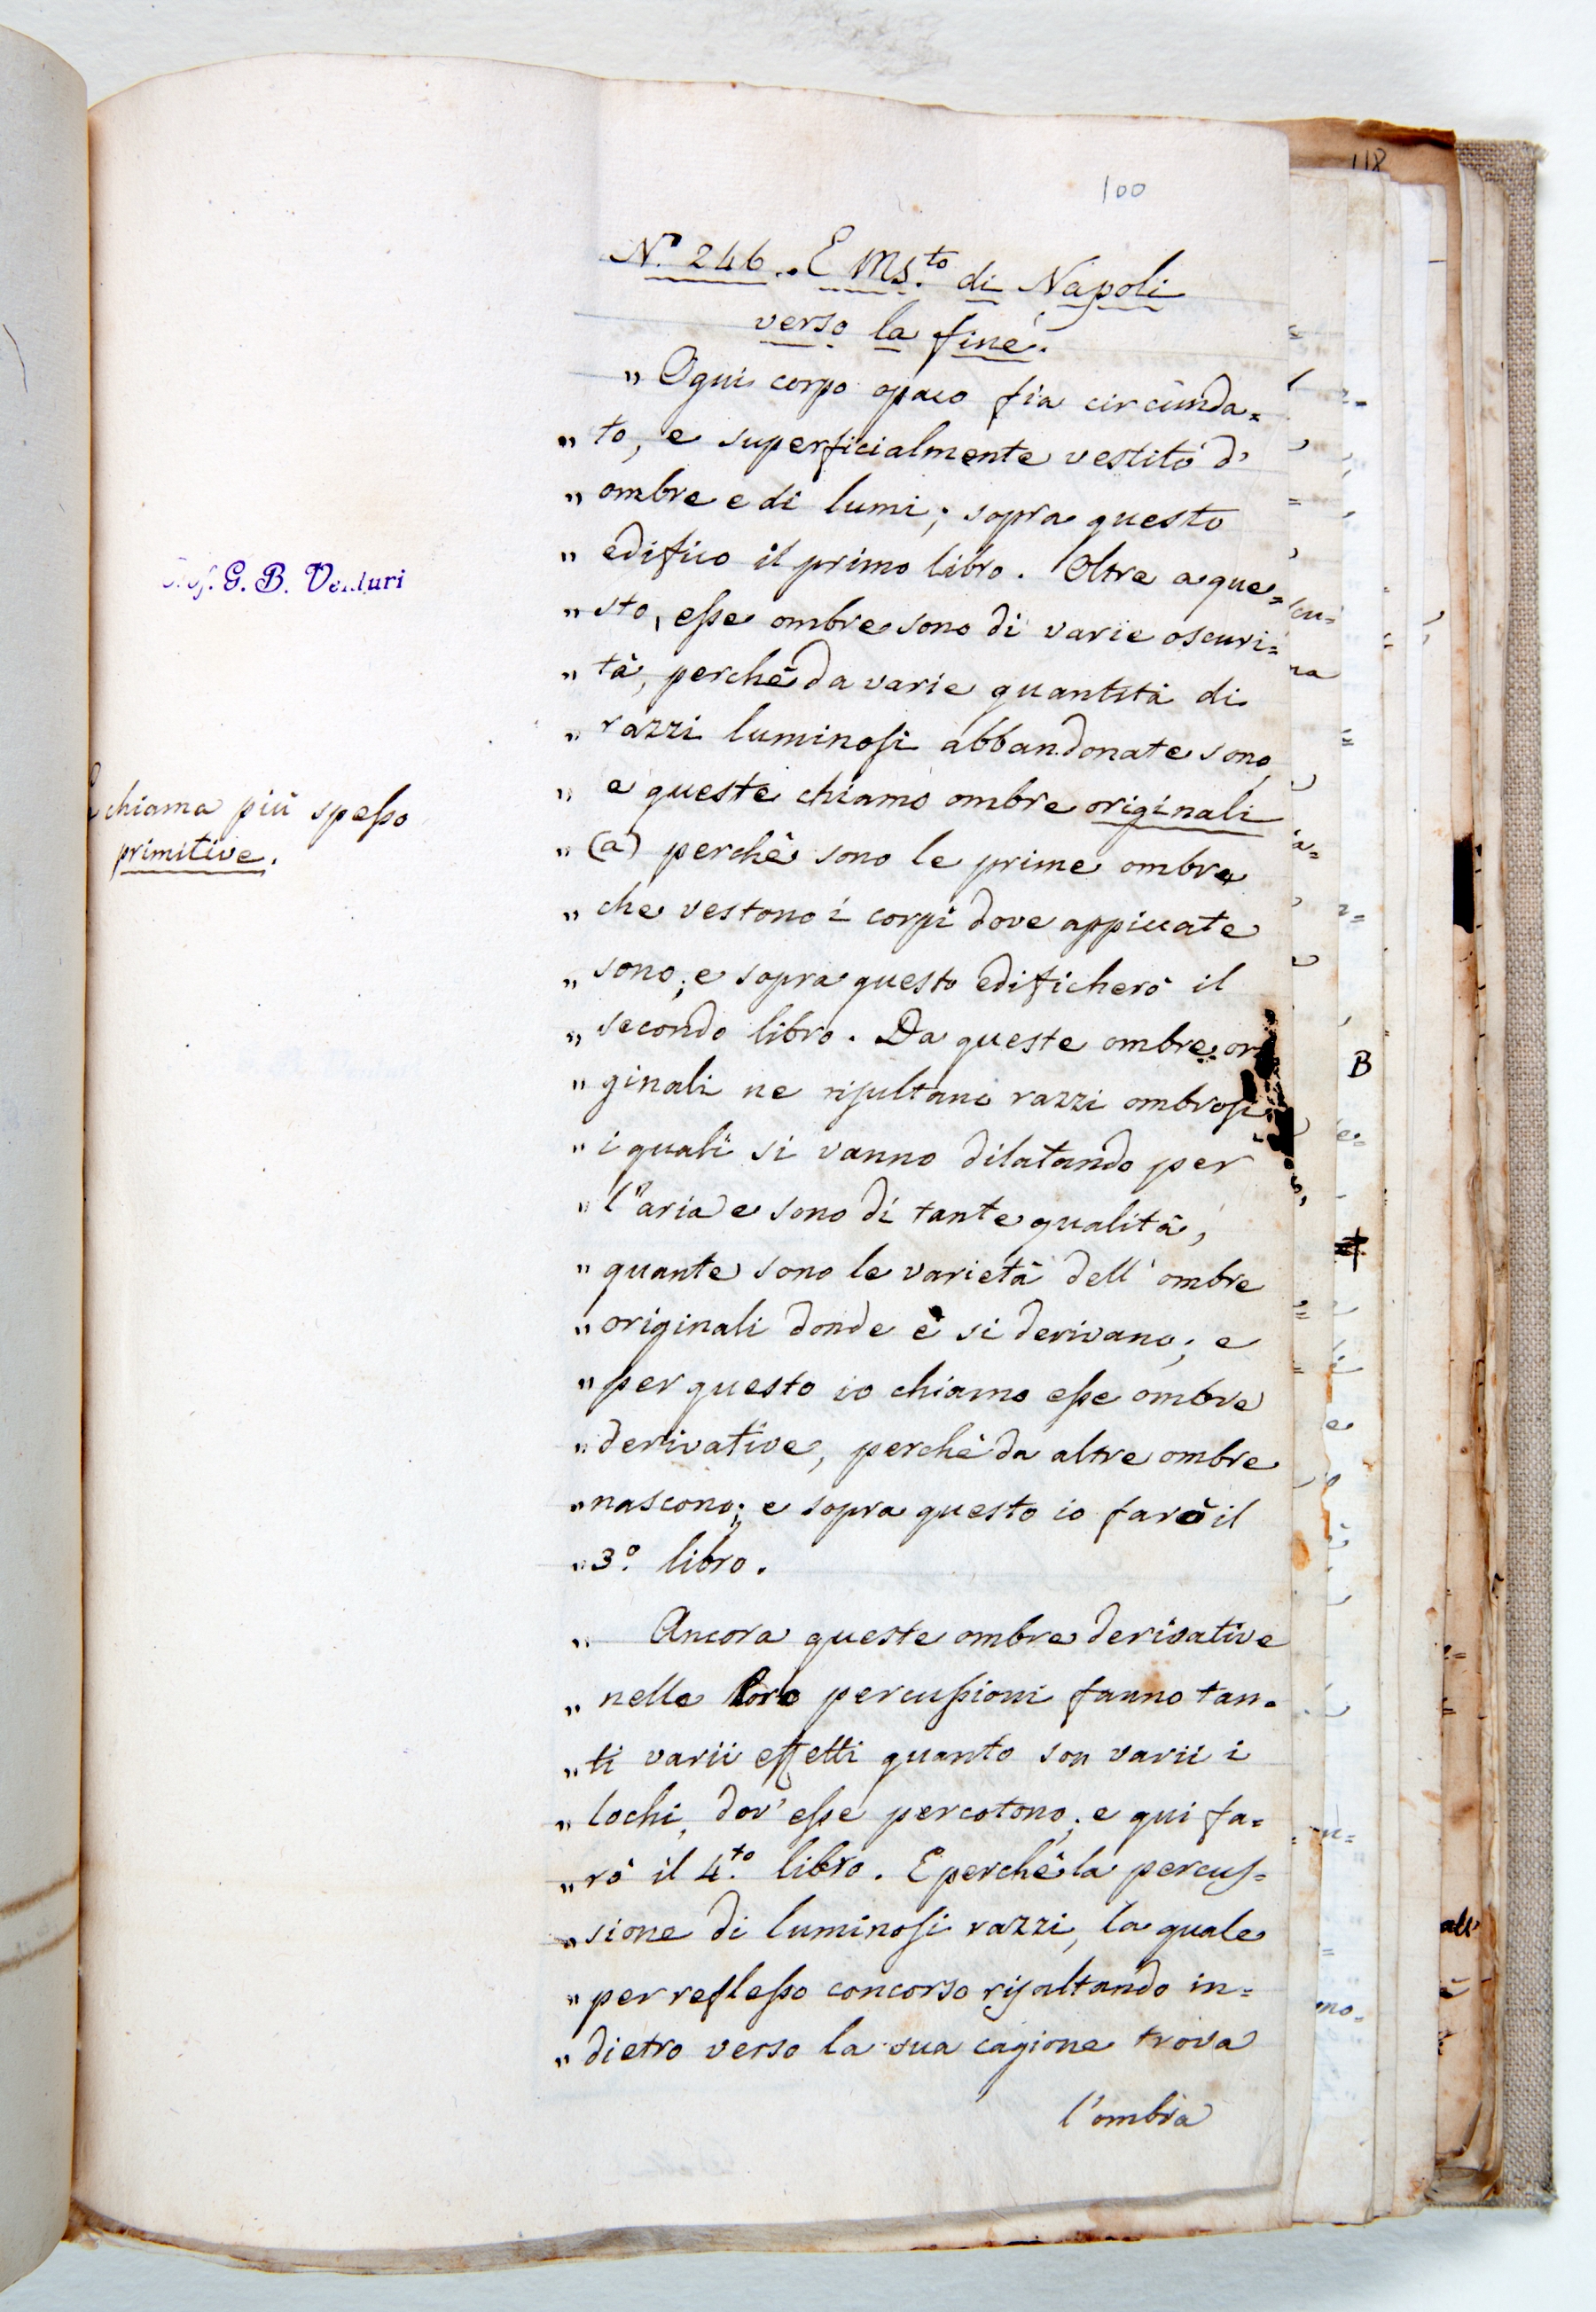 100
118
N.º 246. E Ms.to di Napoli
verso la fine.
„ Ogni corpo opaco fia circunda=
„ to, e superficialmente vestito d'
„ ombre e di lumi; sopra questo
„ edifico il primo libro. Oltre a que=
„ sto, esse ombre sono di varie oscuri=
„ tà, perchè da varie quantità di
„ razzi luminosi abbandonate sono,
„ e queste chiamo ombre originali
„ (a) perchè sono le prime ombre
„ che vestono i corpi dove appiccate
„ sono; e sopra questo edificherò il
„ secondo libro. Da queste ombre ori
„ ginali ne risultano razzi ombrosi
„ i quali si vanno dilatando per
„ l'aria e sono di tante qualità,
„ quante sono le varietà dell' ombre
„ originali donde è si derivano; e
„ per questo io chiamo esse ombre
„ derivative, perchè da altre ombre
„ nascono; e sopra questo io farò il
„ 3.º libro.
„ Ancora queste ombre derivative
„ nelle loro percussioni fanno tan=
„ ti varii effetti quanto son varii i
„ lochi, dov' esse percotono; e qui fa=
„ rò il 4.to libro. E perchè la percus=
„ sione di luminosi razzi, la quale
„ per reflesso concorso risaltando in=
„ dietro verso la sua cagione trova
l'ombra
G. B. Venturi
chiama più spesso
primitive.
B